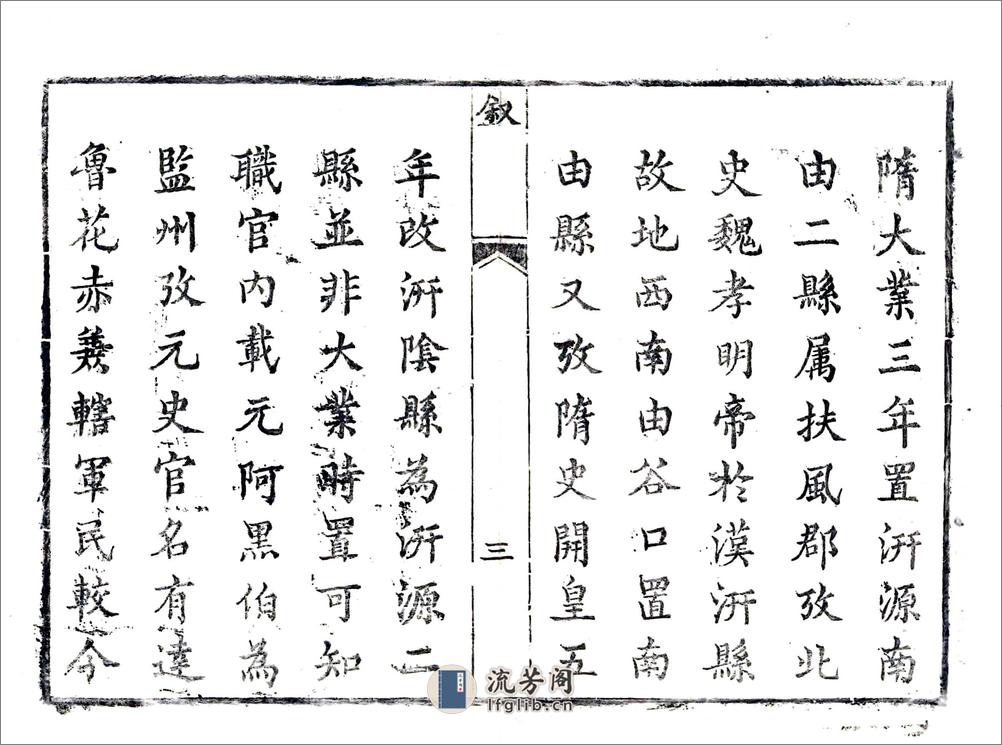 隋大業三年置汧源南
由二縣属扶風郡攷北
史魏孝明帝於漢汧縣
故地西南由谷口置南
由縣又攷隋史開皇五
叙
三
年改汧陰縣為汧源二
縣並非大業時置可知
職官内載元阿黑伯為
監州攷元史官名有達
魯花赤兼轄軍民較今
流芳阁
lfglib.cn